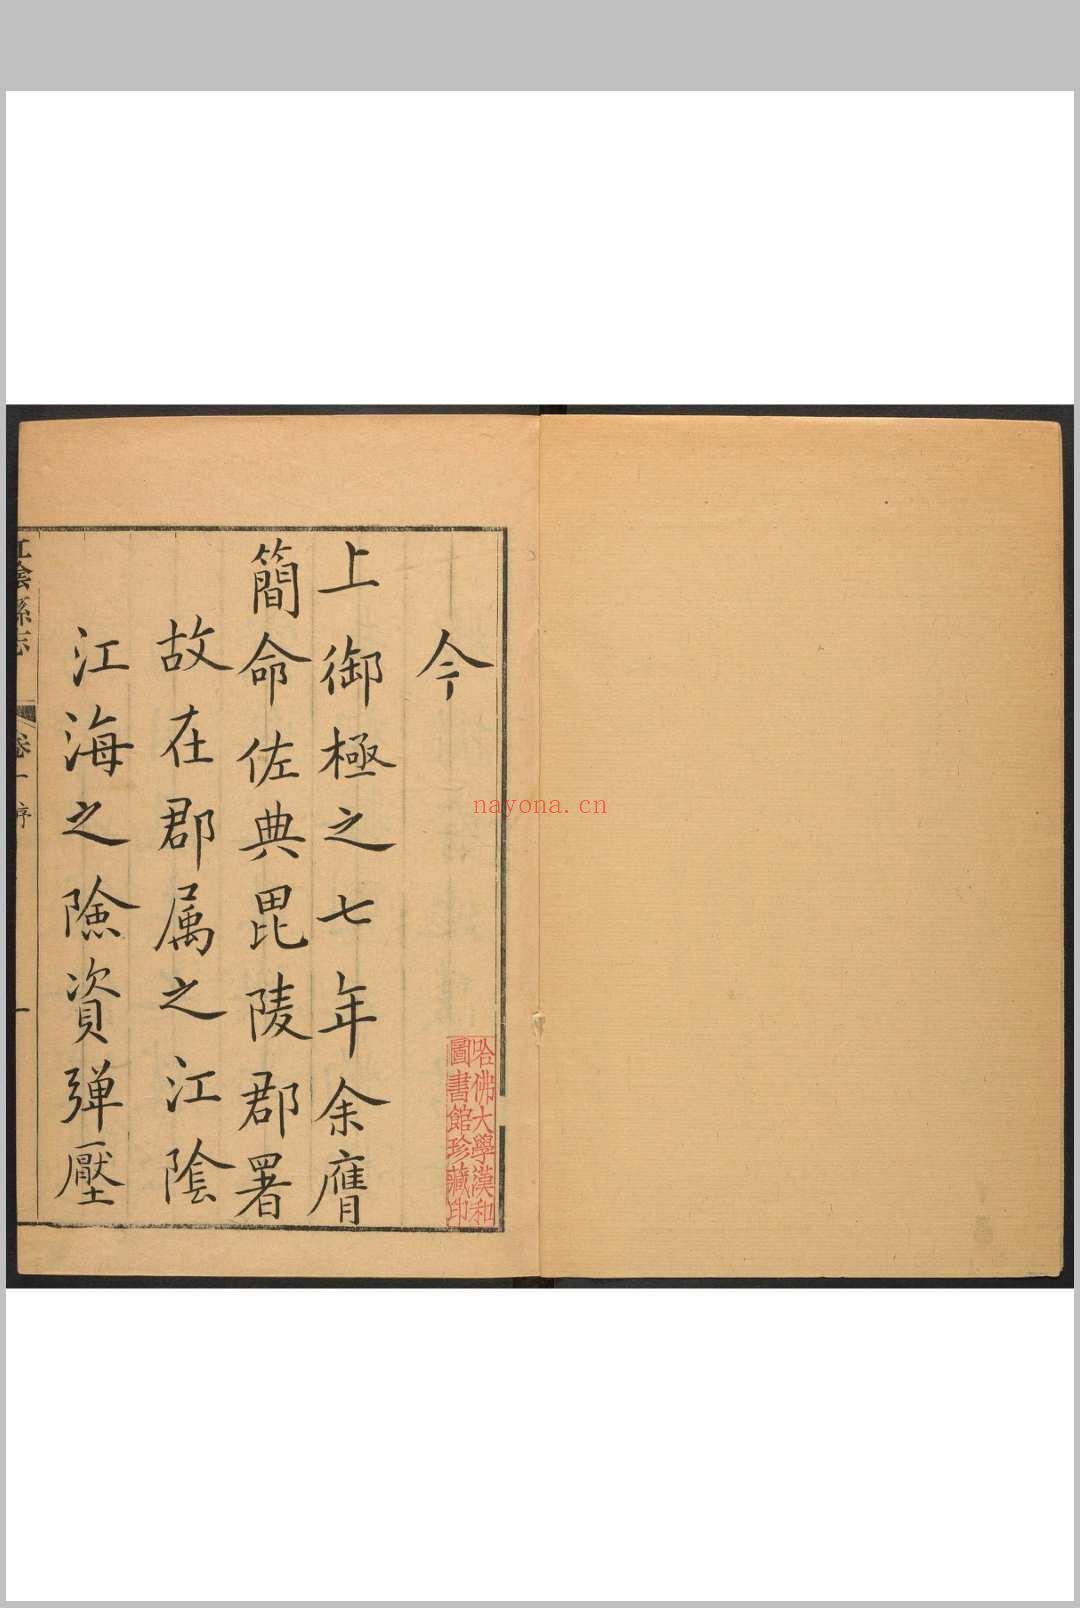 今
上御極之七年余膺
簡命佐典毘陵郡署
故在郡属之江陰
江海之險資弹壓
江陰縣志
卷一序
一
哈佛大學漢和
圖書館珍藏印
nayona.cn